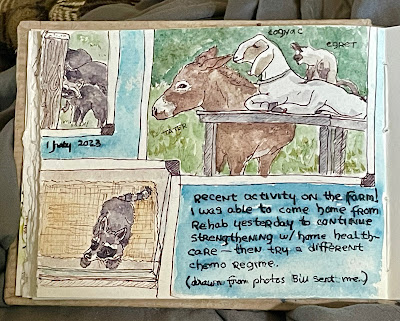 COGNAC
EGRET
TATER
1 July 2023
RECENT ACTIVITY ON THE FARM!
I WAS ABLE TO COME HOME FROM
REHAB YESTERDAY TO CONTINUE
STRENGTHENING W/ HOME HEALTH-
CARE — THEN TRY A DIFFERENT
CHEMO REGIME.
(DRAWN FROM PHOTOS BILL SENT ME.)